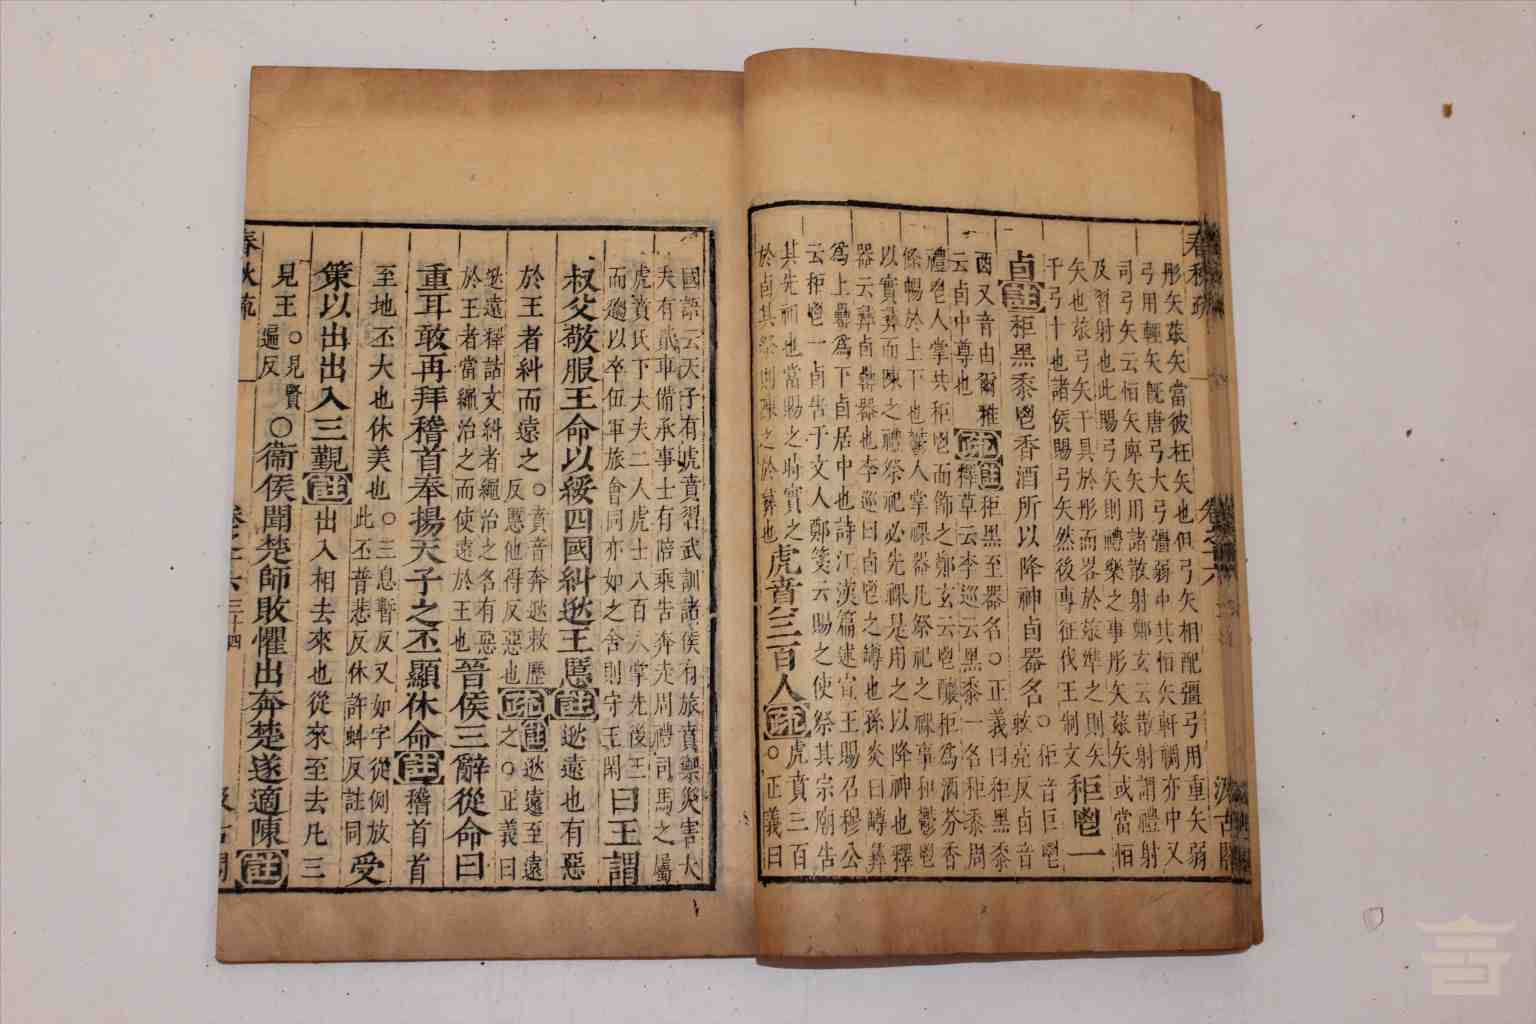 春秋疏　卷之十六　汲古閣
彤矢玈矢當彼枉矢也但弓矢相配彊弓用重矢弱
弓用輕矢旣唐弓大弓彊弱中其恒矢軒輖亦中又
司弓矢云恒矢庳矢用諸散射鄭玄云散射謂禮射
及習射也此賜弓矢則禮樂之事彤矢玈矢或當恒
矢也玈弓矢千具於彤而畧於玈準之則矢
千弓十也諸侯賜弓矢然後專征伐王制文
秬鬯一
卣註秬黑黍鬯香酒所以降神卣器名○秬音巨鬯
敕亮反卣音
酉又音由爾雅
云卣中尊也
疏註秬黑至器名○正義曰秬黑黍
釋草云李巡云黑黍一名秬黍周
禮鬯人掌共秬鬯而飾之鄭玄云鬯釀秬爲酒芬香
條暢於上下也鬱人掌祼器凡祭祀之祼事和鬱鬯
以實彝而陳之禮祭祀必先祼是用之以降神也釋
器云彝卣罍器也李巡曰卣鬯之罇也孫炎曰罇彝
爲上罍爲下卣居中也詩江漢篇述宣王賜召穆公
云秬鬯一卣告于文人鄭箋云賜之使祭其宗廟告
其先祖也當賜之時實之
於卣其祭則陳之於彝也
虎賁三百人疏虎賁三百
○正義曰
國語云天子有虎賁習武訓諸侯有旅賁禦災害大
夫有貳車備承事士有陪乘告奔走周禮司馬之屬
虎賁氏下大夫二人虎士八百人掌先後王
而趨以卒伍軍旅會同亦如之舍則守王閑
曰王謂
叔父敬服王命以綏四國糾逖王慝註逖遠也有惡
於王者糾而遠之○賁音奔逖敕歷
反慝他得反惡也
疏註逖遠至遠
之○正義曰
逖遠釋詁文糾者繩治之名有惡
於王者當繩治之而使遠於王也
晉侯三辭從命曰
重耳敢再拜稽首奉揚天子之丕顯休命註稽首首
至地丕大也休美也○三息暫反又如字從側放
此丕普悲反休許蚪反註同
受
策以出出入三覲註出入相去來也從來至去凡三
見王○見賢
遍反
○衞侯聞楚師敗懼出奔楚遂適陳註
春秋疏　卷之十六　三十四　汲古閣